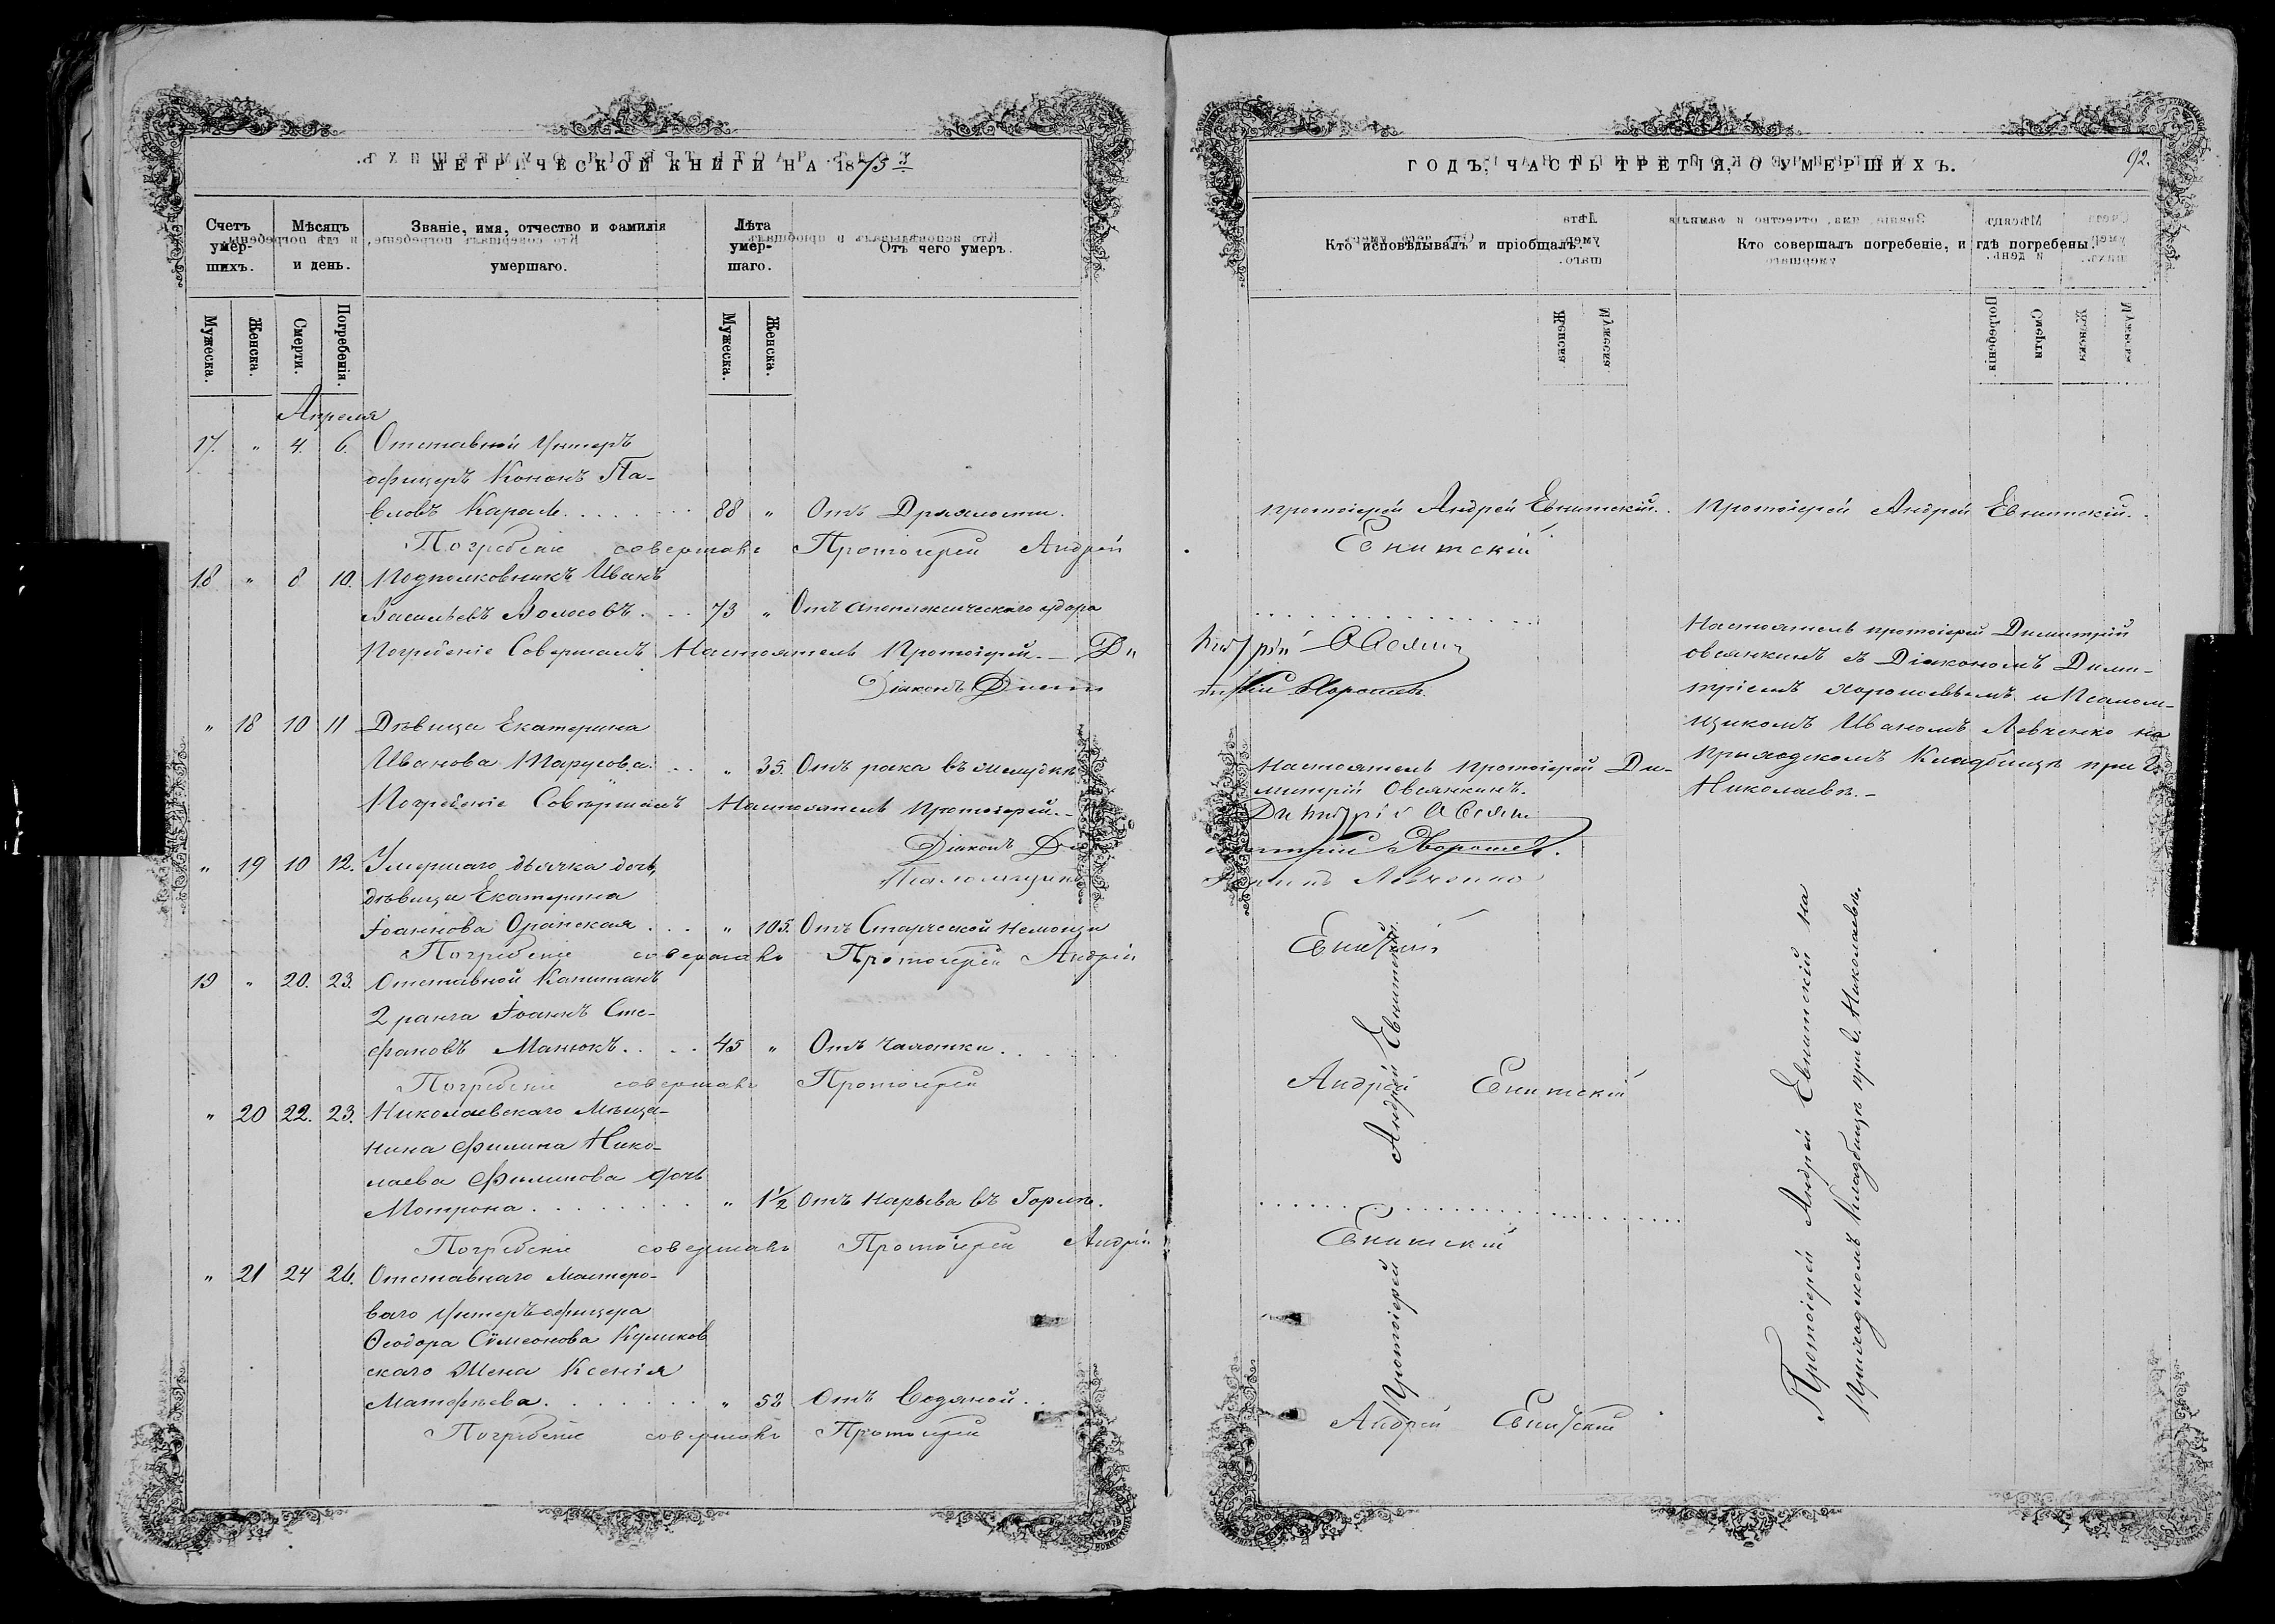 МЕТРИЧЕСКОЙ КНИГИ НА 1873 й
Счетъ умер-шихъ.
Мѣсяцъ и день.
Званіе, имя, отчество и фамилія умершаго.
Лѣта умер-шаго.
Отъ чего умеръ.
Мужеска.
Женска.
Смерти.
Погребенія.
Мужеска.
Женска.
Апреля
17. " 4. 6. Отставной Унтеръ
офицеръ Кононъ Па-
вловъ Караль. 88 " Отъ Дряхлости.
Погребеніе совершалъ Протоіерей Андрей
18 " 8 10. Подполковникъ Иванъ
Васильевъ Волосовъ. 73 " Отъ апоплексическаго удара
Погребеніе Совершалъ Настоятель Протоіерей Ди
Діаконъ Дими
" 18 10 11 Дѣвица Екатерина
Иванова Парусова. " 35. Отъ рака въ желудкѣ
Погребеніе Совершалъ Настоятель Протоіерей
Діаконъ Ди
" 19 10 12. Умершаго дьячка дочь,
Псаломщикъ
дѣвица Екатерина
Іоаннова Оранская " 105. Отъ Старческой немощи
Погребеніе совершалъ Протоіерей Андрей
19 " 20. 23. Отставной Капитанъ
2 ранга Іоаннъ Сте-
фановъ Манюкъ. 45 " Отъ чахотки.
Погребеніе совершалъ Протоіерей
" 20 22. 23. Николаевскаго Мѣща-
нина Филипа Нико-
лаева Филипова дочь
Мотрона " 1½ Отъ нарыва въ Горлѣ.
Погребеніе совершалъ Протоіерей Андрей
" 21 24 26. Отставнаго мастеро-
ваго Унтеръ-офицера
Ѳеодора Сѵмеонова Куликов
скаго Жена Ксенія
Матфѣева. " 52 Отъ Водяной.
Погребеніе совершалъ Протоіерей
ГОДЪ, ЧАСТЬ ТРЕТІЯ, О УМЕРШИХЪ.
92.
Кто исповѣдывалъ и пріобщалъ.
Кто совершалъ погребеніе, и гдѣ погребены.
протоіерей Андрей Евнитскій. Протоіерей Андрей Евнитскій.
Евнитскій
митрій Овсянкин
митрій Хорошев
Настоятель протоіерей Димитрій
Овсянкинъ съ Діакономъ Дими-
тріемъ Хорошевымъ и Псалом-
щикомъ Иваномъ Левченко на
приходскомъ Кладбищѣ при г.
Николаевѣ.
Настоятель протоіерей Ди-
митрій Овсянкинъ.
Димитрій Овсянкин
митрій Хорошев.
Левченко
Евнитскій
Андрей Евнитскій
Евнитскій
Андрей Евнитскій
Протоіерей Андрей Евнитскій.
Протоіерей Андрей Евнитскій на
приходскомъ Кладбищѣ при г. Николаевѣ.